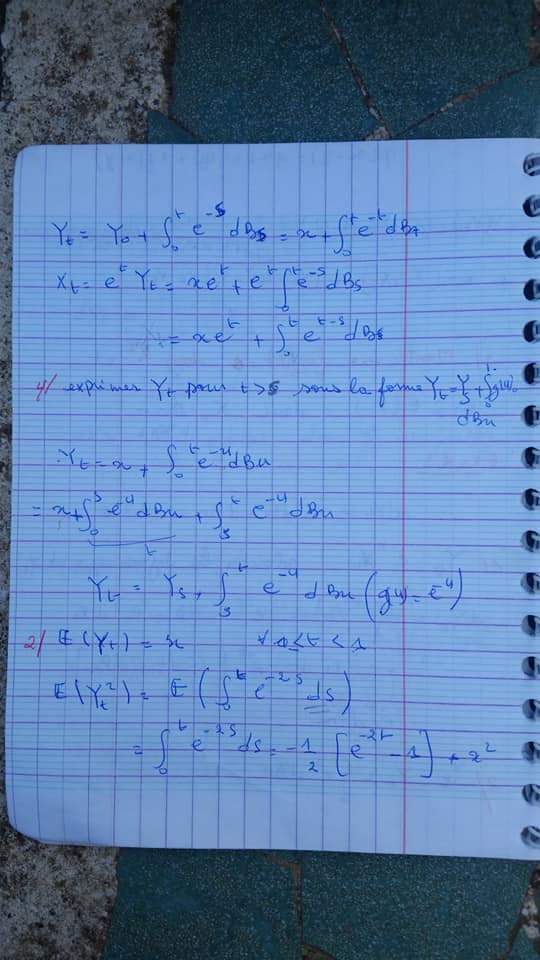 Y_t = Y_0 + ∫_0^t e^{-s} dB_s = x + ∫_0^t e^{-t} dB_t
X_t = e^t Y_t = xe^t + e^t ∫_0^t e^{-s} dB_s
= xe^t + ∫_0^t e^{t-s} dB_s
4/ exprimer Y_t pour t>s sous la forme Y_t = Y_s + ∫_s^t g(u) dBu
Y_t = x + ∫_0^t e^{-u} dBu
= x + ∫_0^s e^{-u} dBu + ∫_s^t e^{-u} dBu
Y_t = Y_s + ∫_s^t e^{-u} dBu (g(u) = e^{-u})
2/ E(Y_t) = x ∀ 0≤t<1
E(Y_t^2) = E(∫_0^t e^{-2s} ds)
= ∫_0^t e^{-2s} ds = -1/2 [e^{-2t} - 1] + x^2